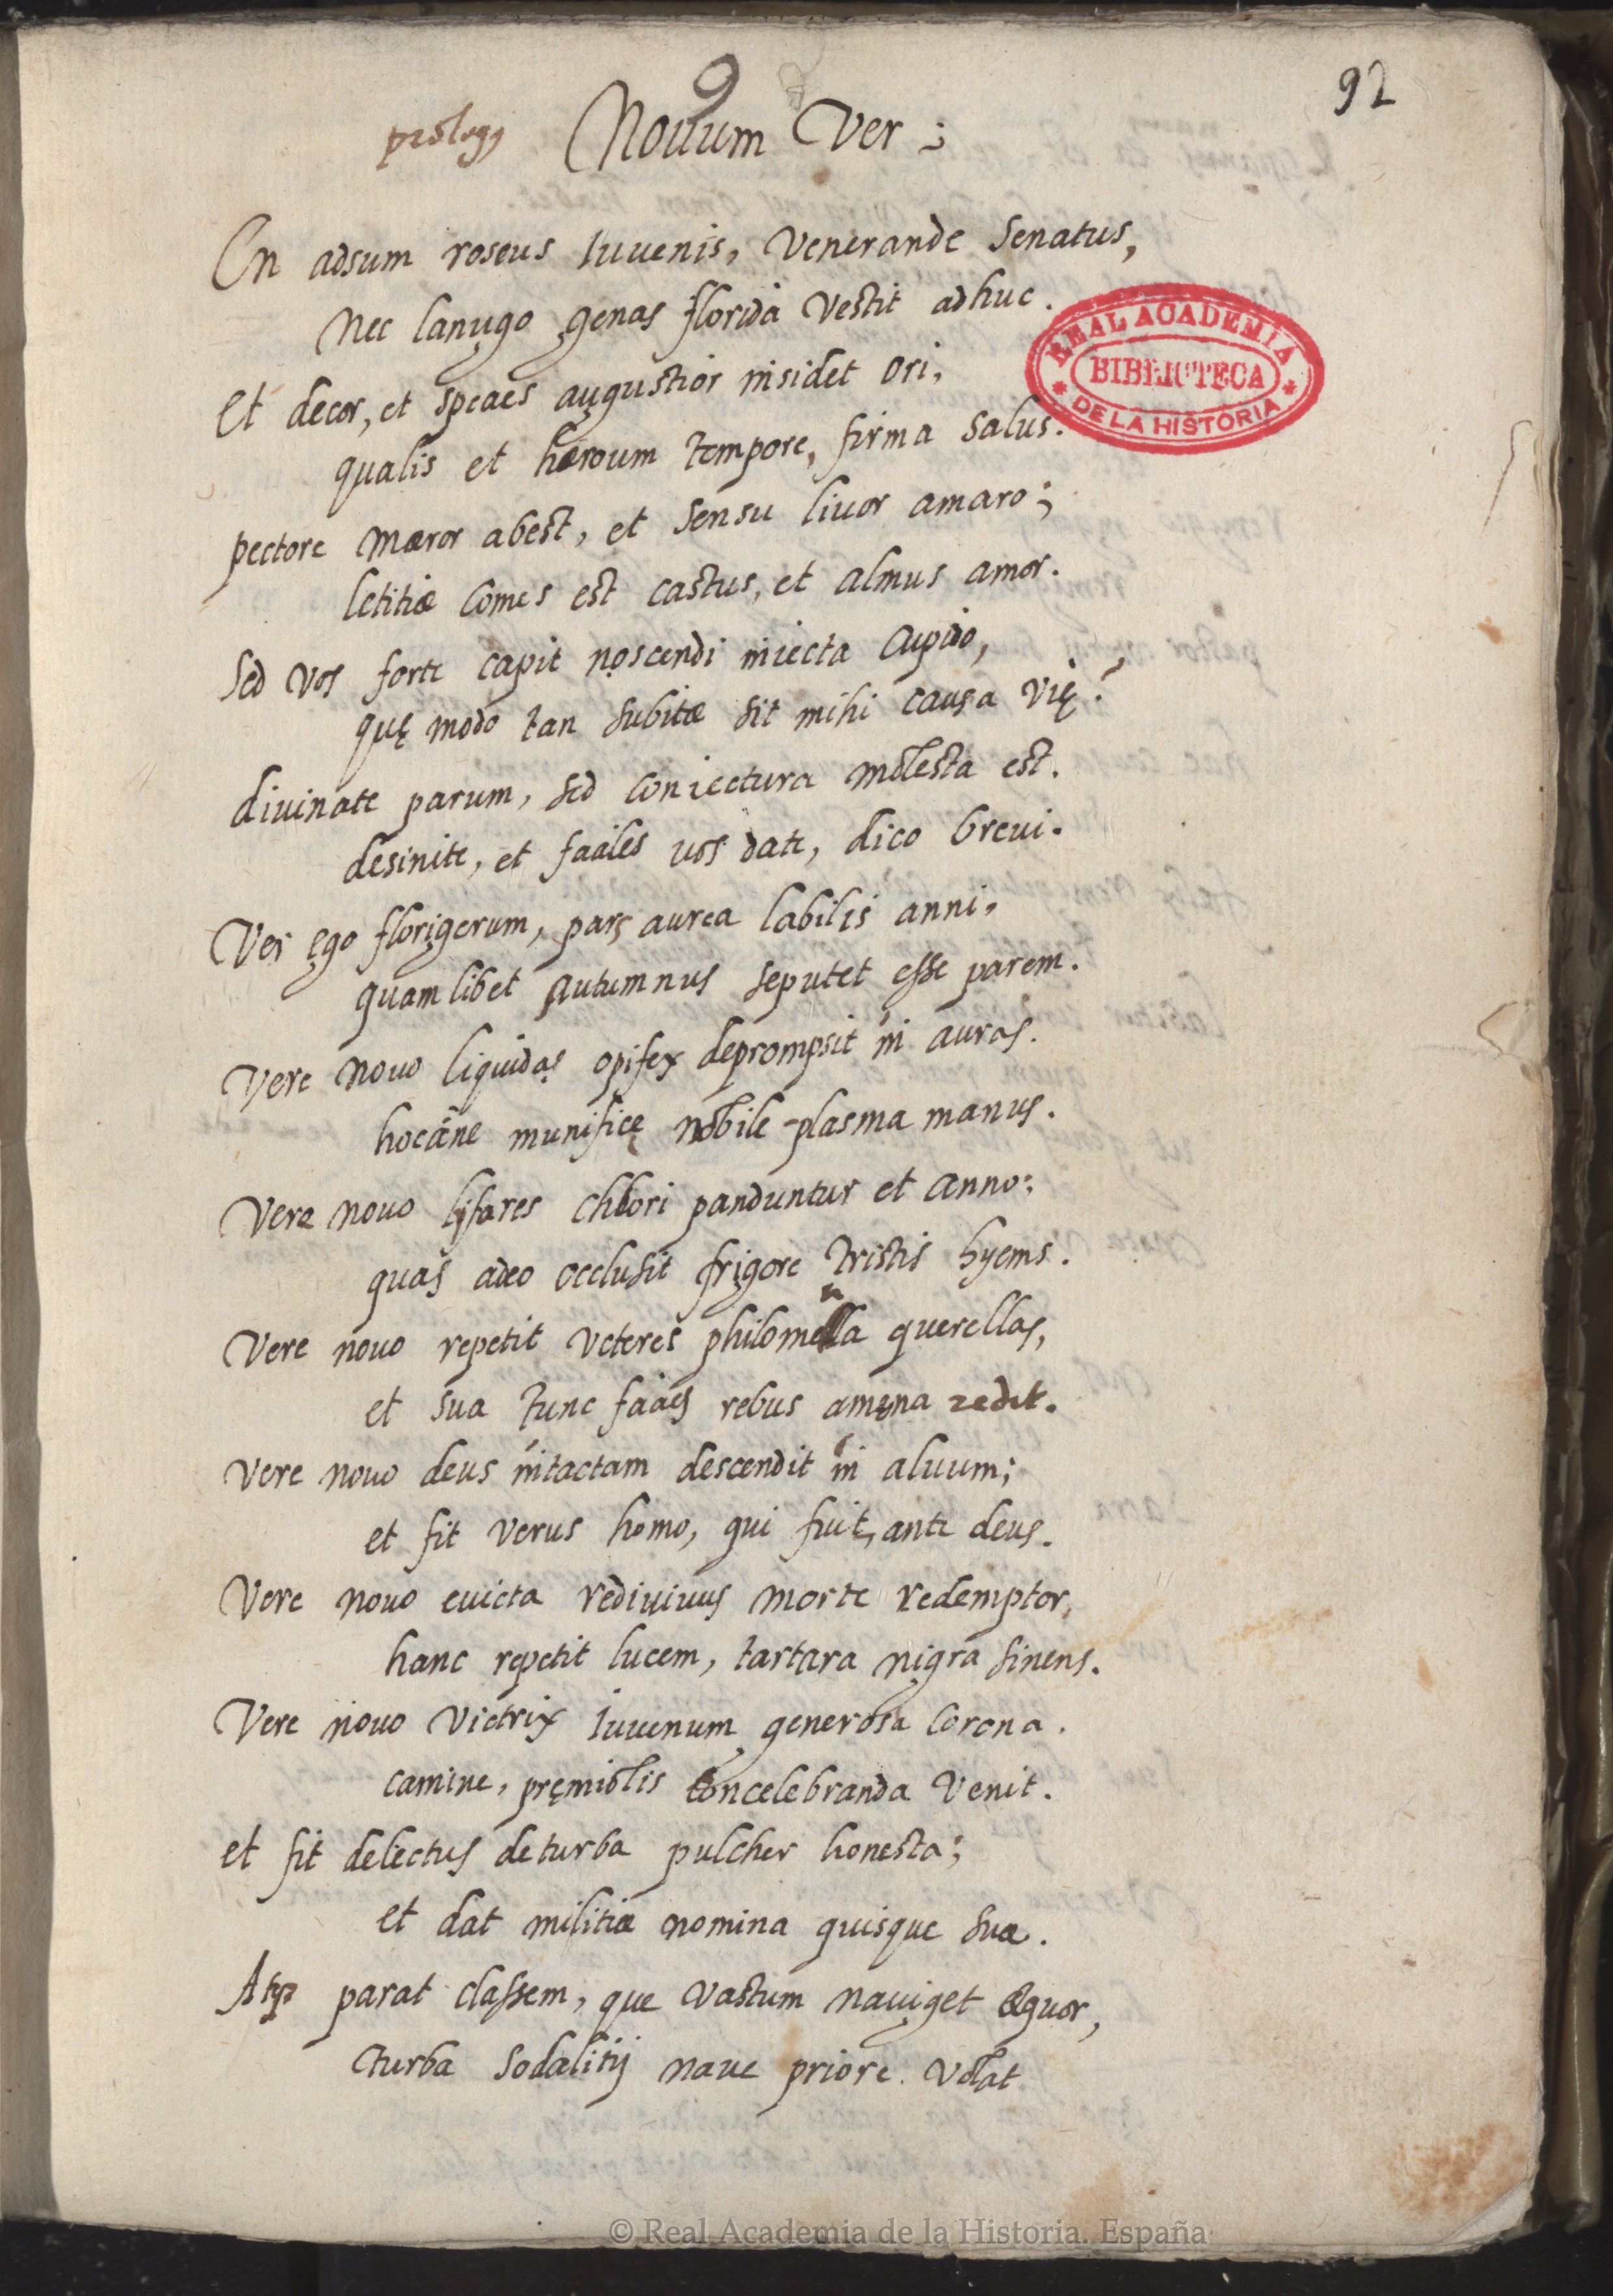 9
92
prologus Novum Ver;
En adsum roseus Iuvenis, Venerande Senatus,
Nec lanugo genas florida Vestit adhuc.
REAL ACADEMIA
BIBLIOTECA
DE LA HISTORIA
Et decor, et species augustior insidet ori,
qualis et hæroum tempore, firma salus.
pectore mæror abest, et sensu livor amaro;
letitiæ comes est castus, et almus amor.
Sed vos forte capit noscendi iniecta cupido,
quę modo tan subitæ sit mihi causa vię?
divinate parum, sed coniectura molesta est.
desinite, et faciles vos date, dico brevi.
Ver ego florigerum, pars aurea labilis anni,
quamlibet Autumnus seputet esse parem.
Vere novo liquidas opifex deprompsit in auras.
hocãne munificę nobile plasma manus.
Vere novo fores chlori panduntur et anno:
quas adeo occlusit frigore tristis hyems.
Vere novo repetit veteres philomella querellas,
et sua tunc facies rebus amęna redit.
Vere novo deus intactam descendit in alvum;
et fit verus homo, qui fuit, ante deus.
Vere novo evicta redivivus morte redemptor,
hanc repetit lucem, tartara nigra sinens.
Vere novo victrix Iuvenum generosa corona.
camine, pręmiolis concelebranda venit.
et fit delectus deturba pulcher honesta;
et dat militiæ nomina quisque suæ.
Atq3 parat classem, que vastum naviget æquor,
turba sodalitij nave priore. volat
© Real Academia de la Historia. España